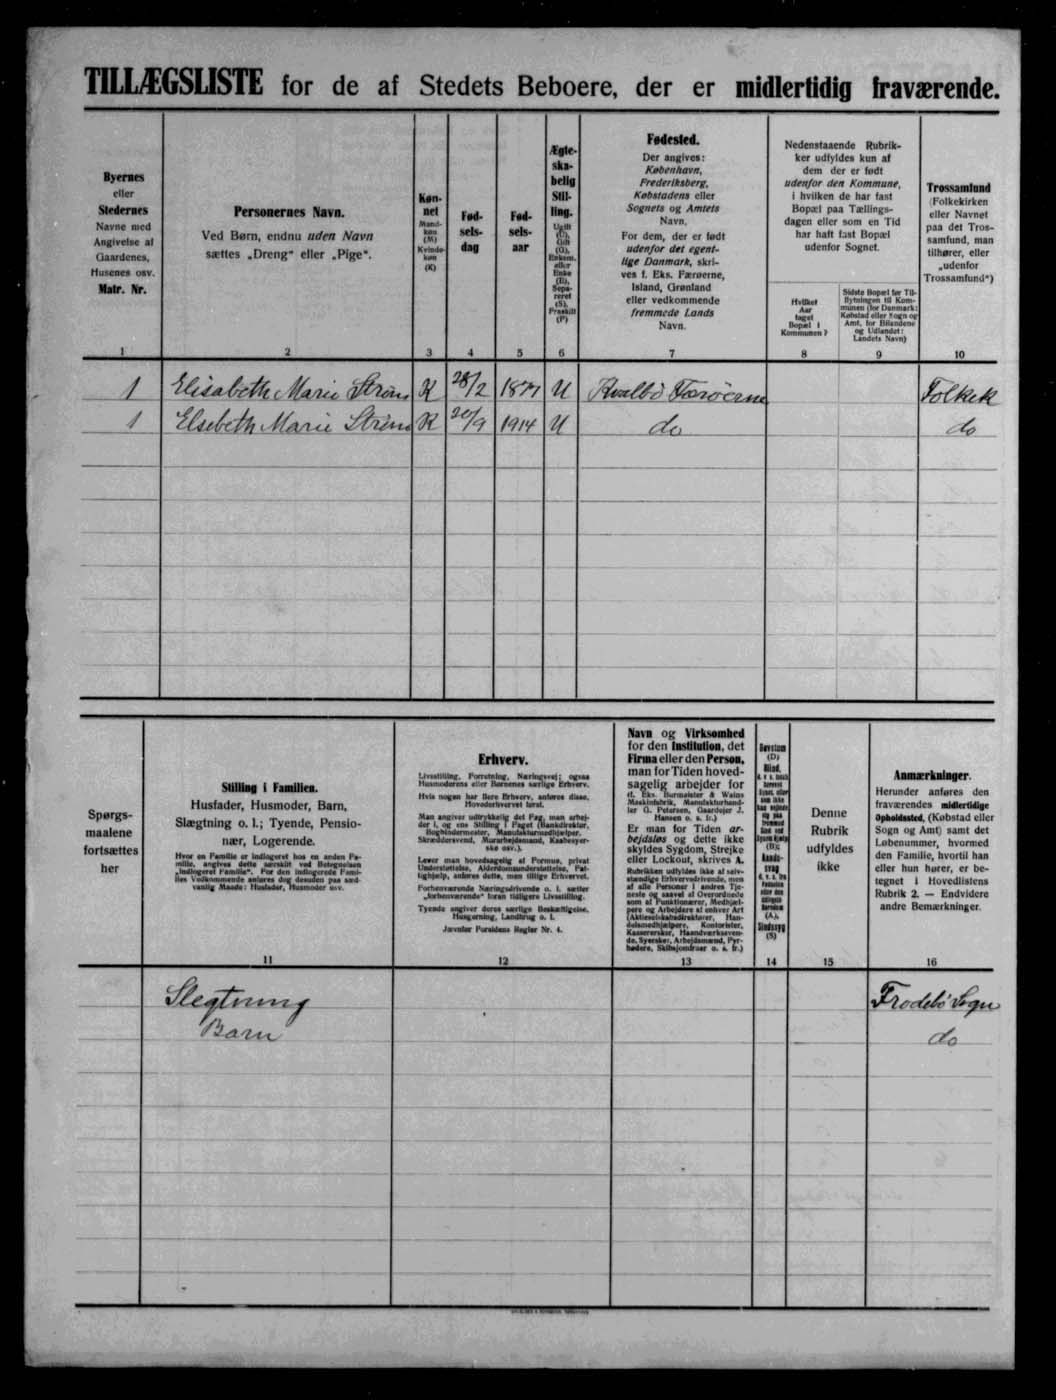 TILLÆGSLISTE for de af Stedets Beboere, der er midlertidig fraværende.
Byernes
eller
Stedernes
Navne med
Angivelse af
Gaardenes,
Husenes osv.
Matr. Nr.
Personernes Navn.
Ved Børn, endnu uden Navn
sættes „Dreng“ eller „Pige“.
Køn-
net
Mand-
køn
(M)
Kvinde-
køn
(K)
Fød-
sels-
dag
Fød-
sels-
aar
Ægte-
ska-
belig
Stil-
ling.
Ugift
(U),
Gift
(G),
Enkem.
eller
Enke
(E),
Sepa-
reret
(S),
Fraskilt
(F)
Fødested.
Der angives:
København,
Frederiksberg,
Købstadens eller
Sognets og Amtets
Navn.
For dem, der er født
udenfor det egent-
lige Danmark, skri-
ves f. Eks. Færøerne,
Island, Grønland
eller vedkommende
fremmede Lands
Navn.
Nedenstaaende Rubrik-
ker udfyldes kun af
dem der er født
udenfor den Kommune,
i hvilken de har fast
Bopæl paa Tællings-
dagen eller som en Tid
har haft fast Bopæl
udenfor Sognet.
Hvilket
Aar
taget
Bopæl i
Kommunen?
Sidste Bopæl før Til-
flytningen til Kom-
munen (for Danmark:
Købstad eller Sogn og
Amt, for Bilandene
og Udlandet:
Landets Navn)
Trossamfund
(Folkekirken
eller Navnet
paa det Tros-
samfund, man
tilhører, eller
„udenfor
Trossamfund“)
1 2 3 4 5 6 7 8 9 10
1 Elisabeth Marie Strøm K 28/2 1877 U Kvalbö Færöerne Folkek
1 Elsebeth Marie Strøm K 20/9 1914 U do do
Spørgs-
maalene
fortsættes
her
Stilling i Familien.
Husfader, Husmoder, Barn,
Slægtning o. l.; Tyende, Pensio-
nær, Logerende.
Hvor en Familie er indlogeret hos en anden Fa-
milie, angives dette særskilt ved Betegnelsen
„Indlogeret Familie“. For den indlogerede Fami-
lies Vedkommende anføres dog desuden paa sæd-
vanlig Maade: Husfader, Husmoder osv.
Erhverv.
Livsstilling, Forretning, Næringsvej; ogsaa
Husmoderens eller Børnenes særlige Erhverv.
Hvis nogen har flere Erhverv, anføres disse,
Hovederhvervet først.
Man angiver udtrykkelig det Fag, man arbej-
der i, og ens Stilling i Faget (Bankdirektør,
Bogbindermester, Manufakturmedhjælper,
Skræddersvend, Murarbejdsmand, Kaabesyer-
ske osv.).
Lever man hovedsagelig af Formue, privat
Understøttelse, Alderdomsunderstøttelse, Fat-
tighjælp, anføres dette, men tillige Erhvervet.
Forhenværende Næringsdrivende o. l. sætter
„forhenværende“ foran tidligere Livsstilling.
Tyende angiver deres særlige Beskæftigelse,
Husgerning, Landbrug o. l.
Jævnfør Forsidens Regler Nr. 4.
Navn og Virksomhed
for den Institution, det
Firma eller den Person,
man for Tiden hoved-
sagelig arbejder for
(f. Eks. Burmeister & Wains
Maskinfabrik, Manufakturhand-
ler G. Petersen, Gaardejer J.
Hansen o. s. fr.)
Er man for Tiden ar-
bejdsløs og dette ikke
skyldes Sygdom, Strejke
eller Lockout, skrives A.
Rubrikken udfyldes ikke af selv-
stændige Erhvervsdrivende, men
af alle Personer i andres Tje-
neste og saavel af Overordnede
som af Funktionærer, Medhjæl-
pere og Arbejdere af enhver Art
(Aktieselskabsdirektører, Han-
delsmedhjælpere, Kontorister,
Kasserersker, Haandværkssven-
de, Syersker, Arbejdsmænd, Fyr-
bødere, Skibsjomfruer o. s. fr.)
Døvstum
(D)
Blind,
(B);
Aands-
svag
(A),
Sindssyg
(S)
Denne
Rubrik
udfyldes
ikke
Anmærkninger.
Herunder anføres den
fraværendes midlertidige
Opholdssted, (Købstad eller
Sogn og Amt) samt det
Løbenummer, hvormed
den Familie, hvortil han
eller hun hører, er be-
tegnet i Hovedlistens
Rubrik 2. — Endvidere
andre Bemærkninger.
11 12 13 14 15 16
Slegtning Frodebö Sogn
Barn do